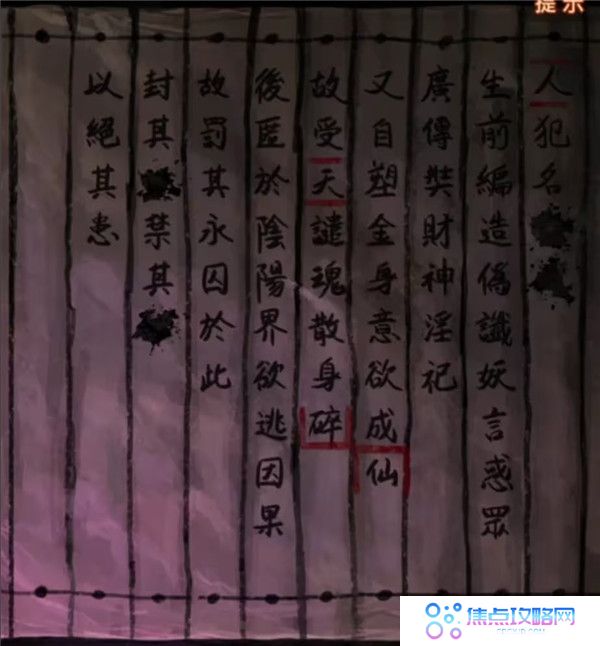 提示
人犯名
生前編造偽讖妖言惑眾
廣傳奘財神淫祀
又自塑金身意欲成仙
故受天譴魂散身碎
後匿於陰陽界欲逃因果
故罰其永囚於此
封其禁其
以絕其患
焦点攻略网